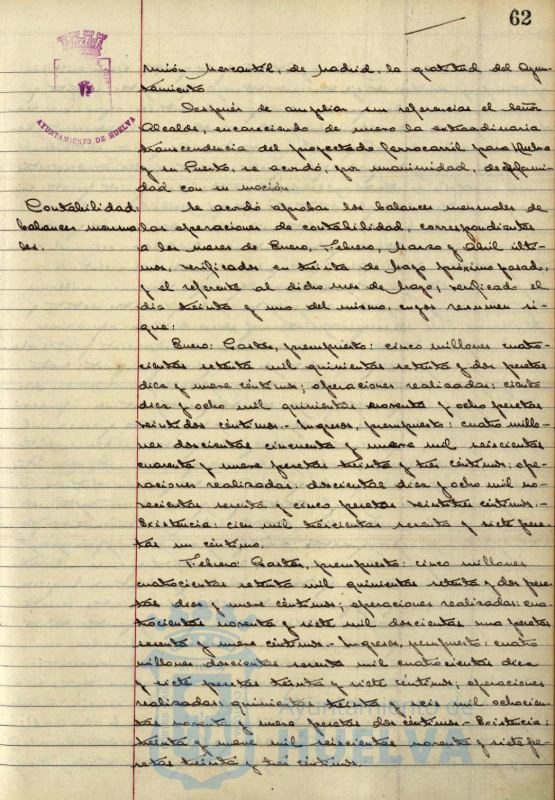 62
AYUNTAMIENTO DE HUELVA
Unión Mercantil, de Madrid, la gratitud del Ayun-
tamiento.
Después de ampliar sus referencias el Señor
Alcalde, encareciendo de nuevo la extraordinaria
transcendencia del proyectado ferrocarril para Huelva
y su Puerto, se acordó, por unanimidad, de conformi-
dad con su moción.
Contabilidad:
balances mensua
les.
Se acordó aprobar los balances mensuales de
las operaciones de contabilidad, correspondientes
a los meses de Enero, Febrero, Marzo y Abril últi-
mos, verificados en treinta de Mayo próximo pasado,
y el referente al dicho mes de Mayo, verificado el
día treinta y uno del mismo, cuyo resumen si-
gue:
Enero: Gastos, presupuesto: cinco millones cuatro-
cientas setenta mil quinientas setenta y dos pesetas
diez y nueve céntimos; operaciones realizadas: ciento
diez y ocho mil quinientas noventa y ocho pesetas
veintidos céntimos.- Ingresos, presupuesto: cuatro millo-
nes doscientas cincuenta y nueve mil seiscientas
cuarenta y nueve pesetas treinta y tres céntimos; ope-
raciones realizadas: doscientas diez y ocho mil no-
vecientas sesenta y cinco pesetas veintitres céntimos.-
Existencia: cien mil trescientas sesenta y siete pese-
tas un céntimo.
Febrero: Gastos, presupuesto: cinco millones
cuatrocientas setenta mil quinientas setenta y dos pese-
tas diez y nueve céntimos; operaciones realizadas: cua-
trocientas noventa y siete mil doscientas una pesetas
sesenta y nueve céntimos.- Ingresos, presupuesto: cuatro
millones doscientas sesenta mil cuatrocientas diez
y siete pesetas treinta y siete céntimos; operaciones
realizadas: quinientas treinta y seis mil ochocien-
tas noventa y nueve pesetas dos céntimos.- Existencia:
treinta y nueve mil seiscientas noventa y siete pe-
setas treinta y tres céntimos.
Ayuntamiento de
HUELVA